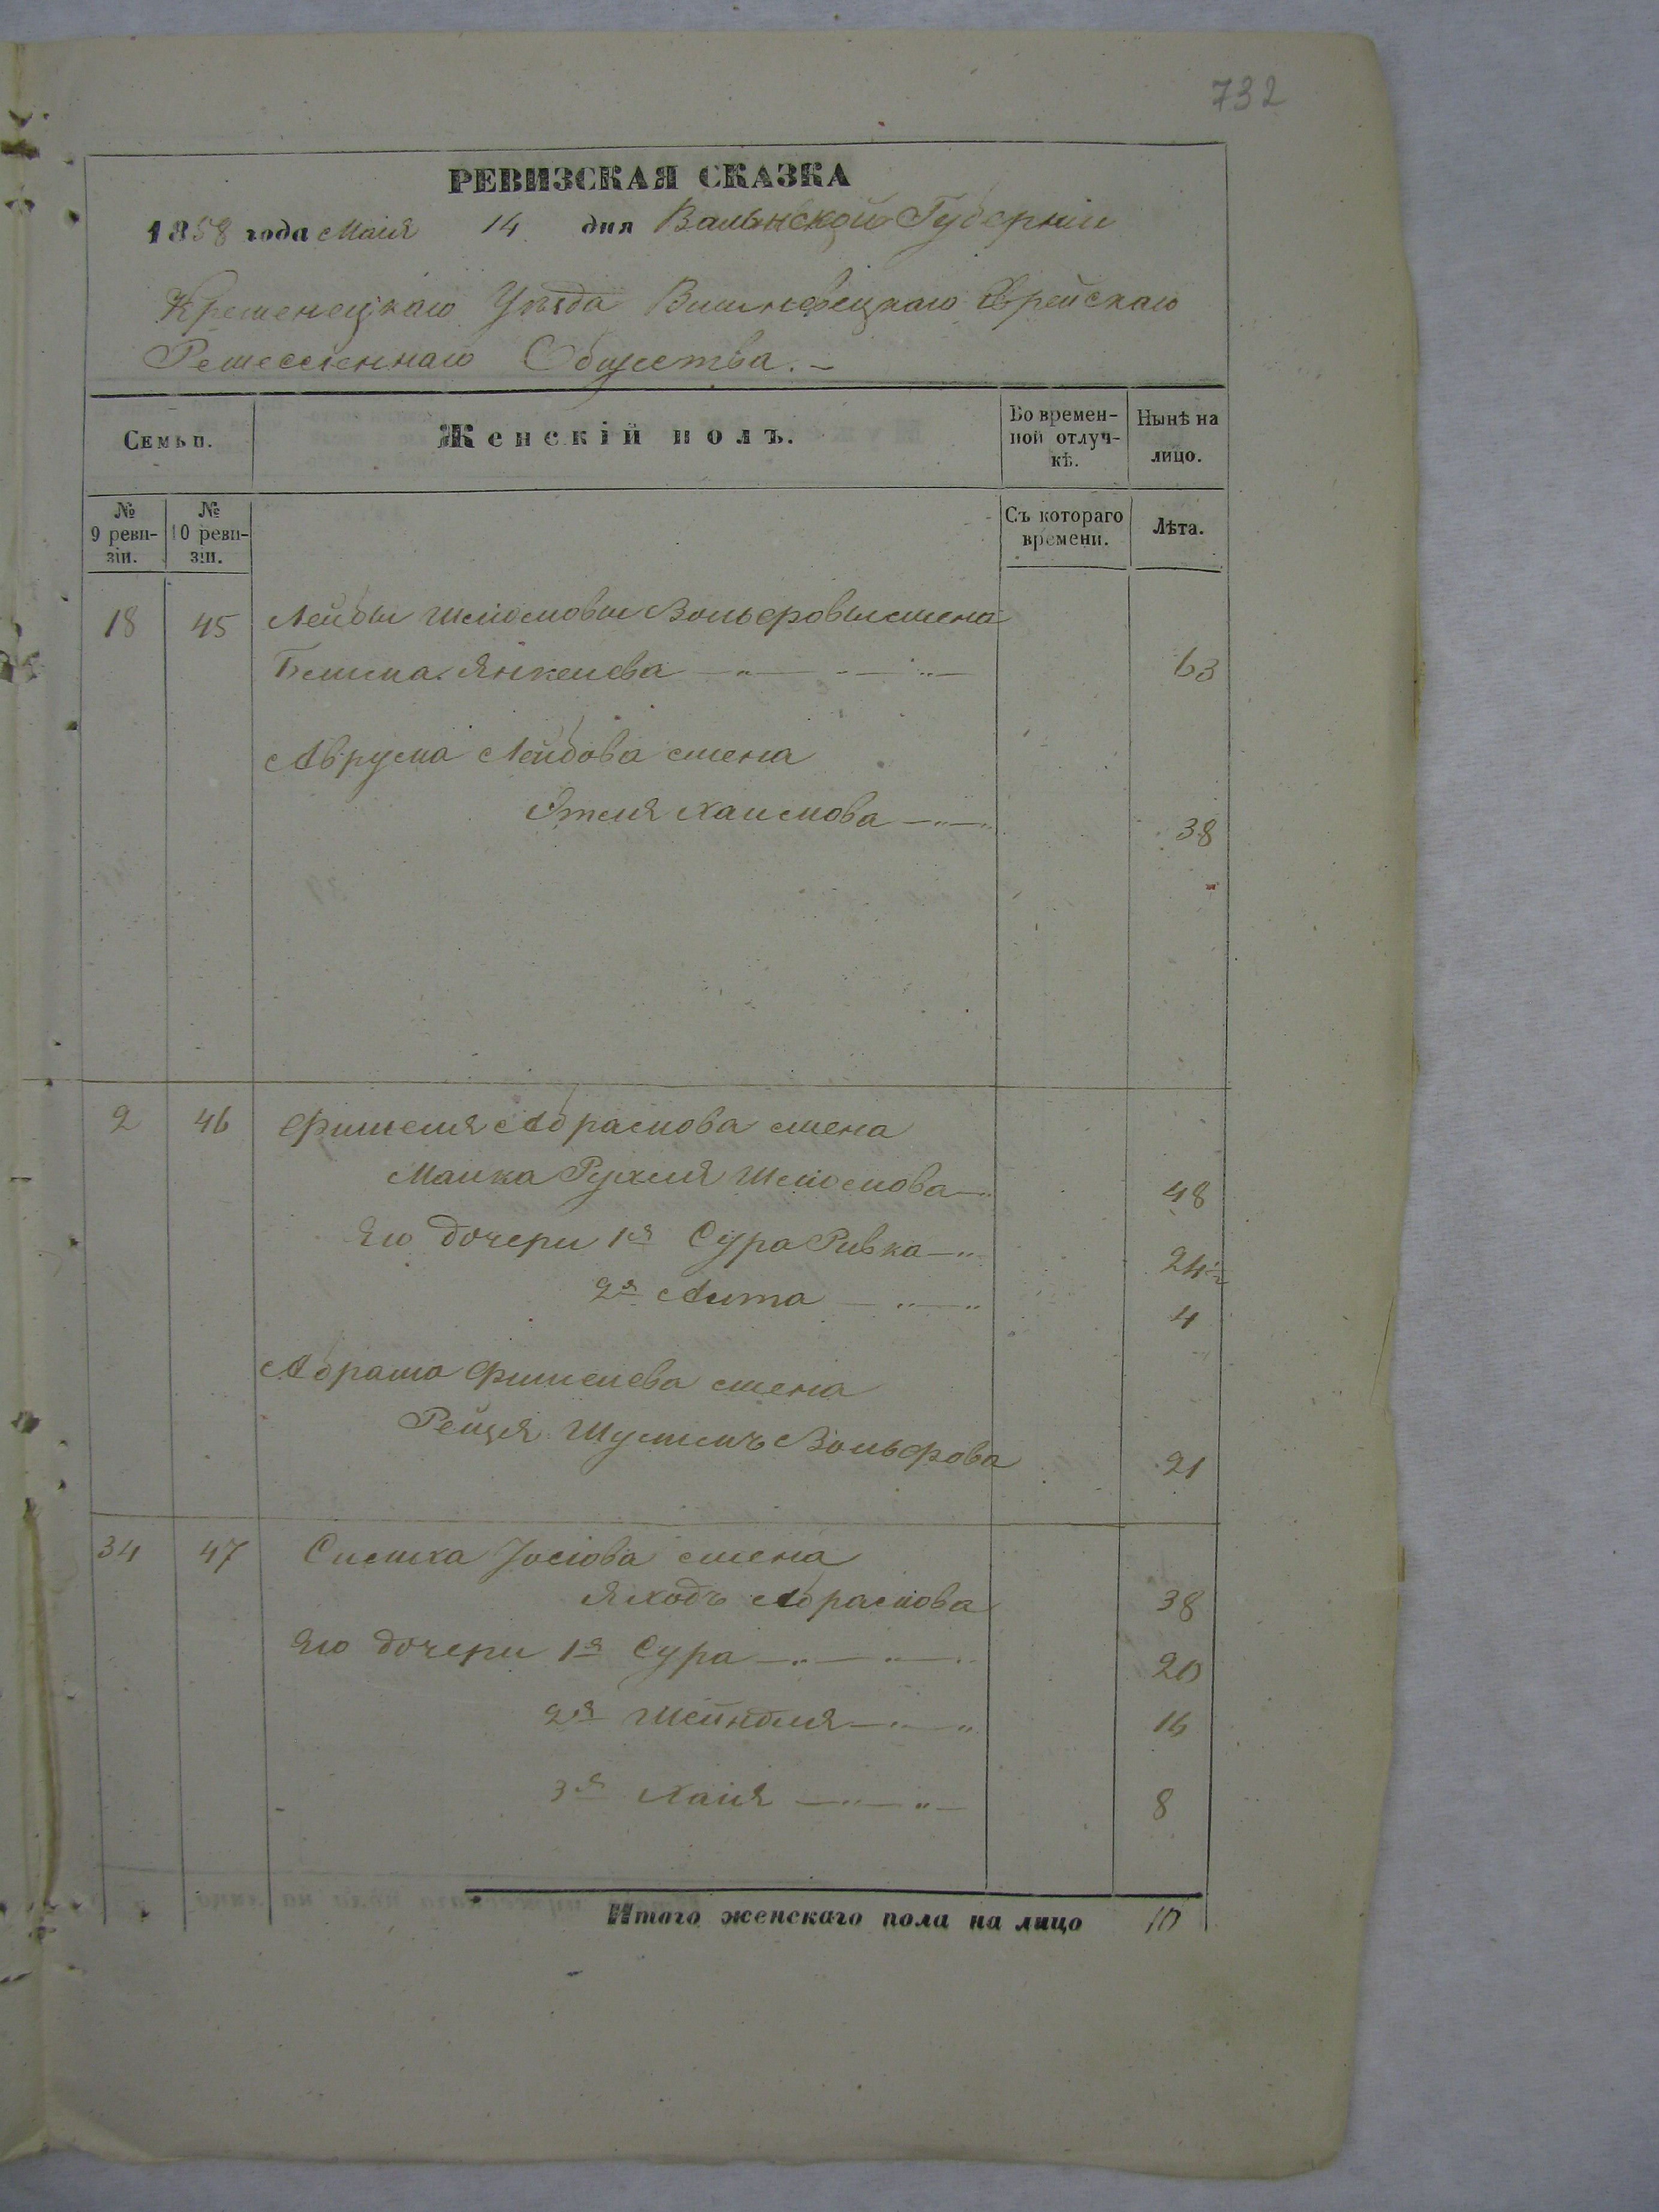 732
РЕВИЗСКАЯ СКАЗКА
1858 года Маія 14 дня Валынской Губерніи
Кременецкаго Уѣзда Вишневецкаго Еврейскаго
Ремесленнаго Общества. –
Семьи.
Женскій полъ.
Во времен-
ной отлуч-
кѣ.
Нынѣ на
лицо.
№
9 реви-
зіи.
№
10 реви-
зіи.
Съ котораго
времени.
Лѣта.
18 45 Лейбы Шлиомовы Вольфовы жена
Янкелева — „ — - — „ — 63
Аврума Лейбова жена
Этля Хаимова — „ — 38
2 46 Фишеля Абрамова жена
Малка Рухля Шлиомова — 48
Его дочери 1я Сура Ривка — „ 24
2я — „ — „ 4
Абрама Фишелева жена
Рейзя Вольфова 21
34 47 Симха Іосіова жена
Абрамова 38
Его дочери 1я Сура — „ — „ — 20
2я Шейндля — „ — „ 16
3я Хаия — „ — „ — 8
Итого женскаго пола на лицо 10